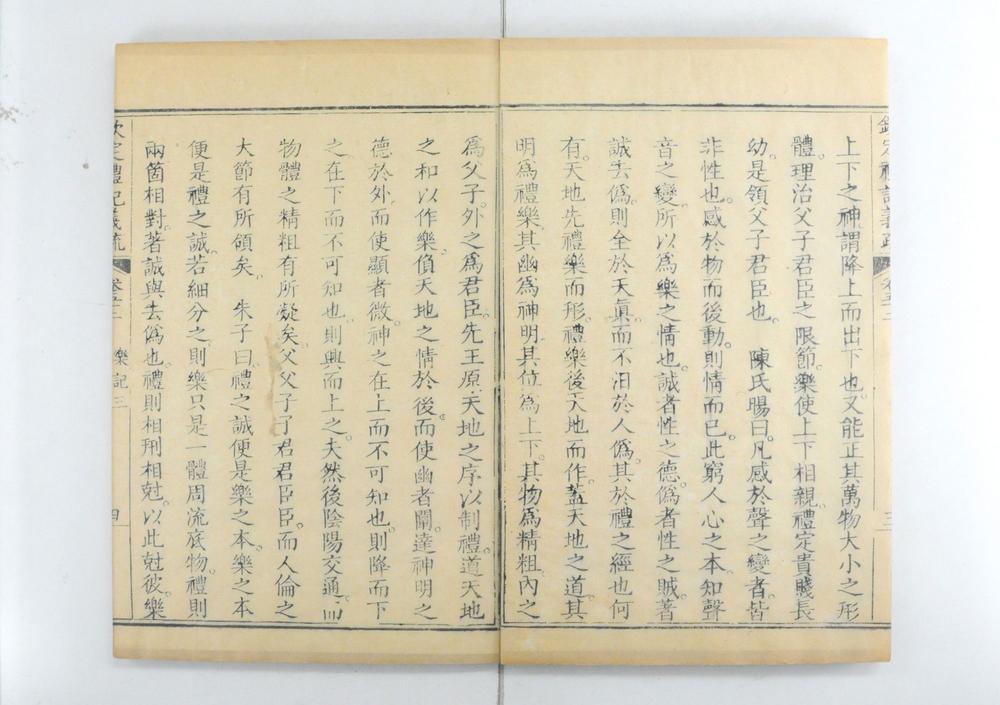 欽定禮記義疏 卷五十二 三
上下之神謂降上而出下也又能正其萬物大小之形
體理治父子君臣之限節樂使上下相親禮定貴賤長
幼是領父子君臣也 陳氏暘曰凡感於聲之變者皆
非性也感於物而後動則情而已此窮人心之本知聲
音之變所以為樂之情也誠者性之德偽者性之賊著
誠去偽則全於天真而不汨於人偽其於禮之經也何
有天地先禮樂而形禮樂後天地而作蓋天地之道其
明為禮樂其幽為神明其位為上下其物為精粗內之
為父子外之為君臣先王原天地之序以制禮道天地
之和以作樂偩天地之情於後而使幽者闡達神明之
德於外而使顯者微神之在上而不可知也則降而下
之在下而不可知也則興而上之夫然後陰陽交通而
物體之精粗有所凝矣父父子子君君臣臣而人倫之
大節有所領矣 朱子曰禮之誠便是樂之本樂之本
便是禮之誠若細分之則樂只是一體周流底物禮則
兩箇相對著誠與去偽也禮則相刑相尅以此尅彼樂
欽定禮記義疏 卷五十二 樂記三 四